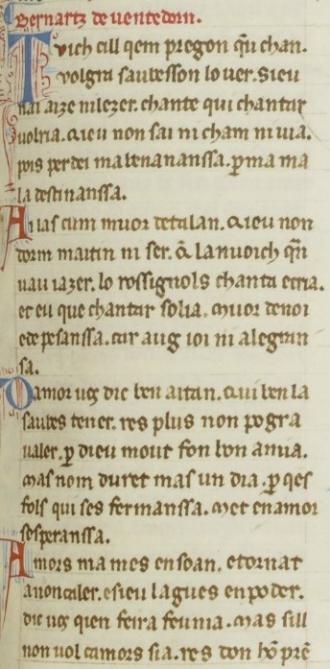 Bernartz de uentedorn.
Tuich cill qem pregon qeu chan.
uolgra saubesson lo uer. sieu
nai aize ni lezer. chante qui chantar
uolria. qieu non sai ni cham ni uia.
pois perdei ma benananssa. p ma ma
la destinanssa.
Ailas cum muor de talan. qieu non
dorm maitin ni ser. q la nuoich qan
uau iazer. lo rossignols chanta ecria.
et eu que chantar solia. muor denoi
e de pesanssa. car aug ioi ni alegran
sa.
Damor uos dic ben aitan. qui ben la
saubes tener. res plus non pogra
ualer. p dieu mout fon bon anua.
mas nom duret mas un dia. p qes
fols qui ses fermanssa. met en amor
sesperanssa.
Amors ma mes en soan. e tornat
a nonchaler. e sieu lagues en poder.
dic uos quen feira feunia. mas sill
non uol camors sia. res don hō prē